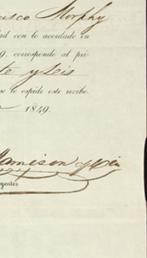 isco Morphy
ad con lo acordado en
9, corresponde al pri-
te y seis
se le espide este recibo.
1849.
Jamison y Cia